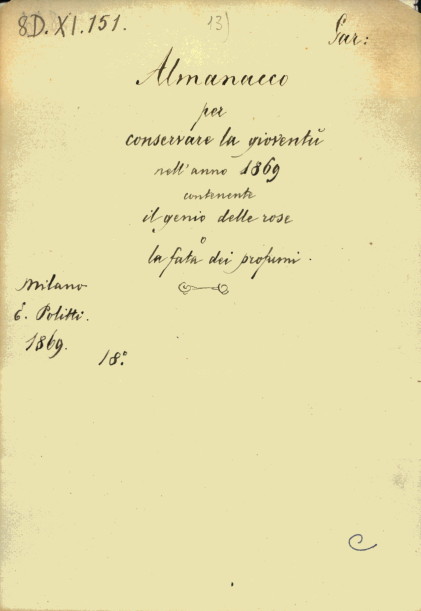 8D.XI.151.
13)
Gar:
Almanacco
per
conservare la gioventù
nell'anno 1869
contenente
il genio delle rose
o
la fata dei profumi.
Milano
E. Politti.
1869.
18.º
C